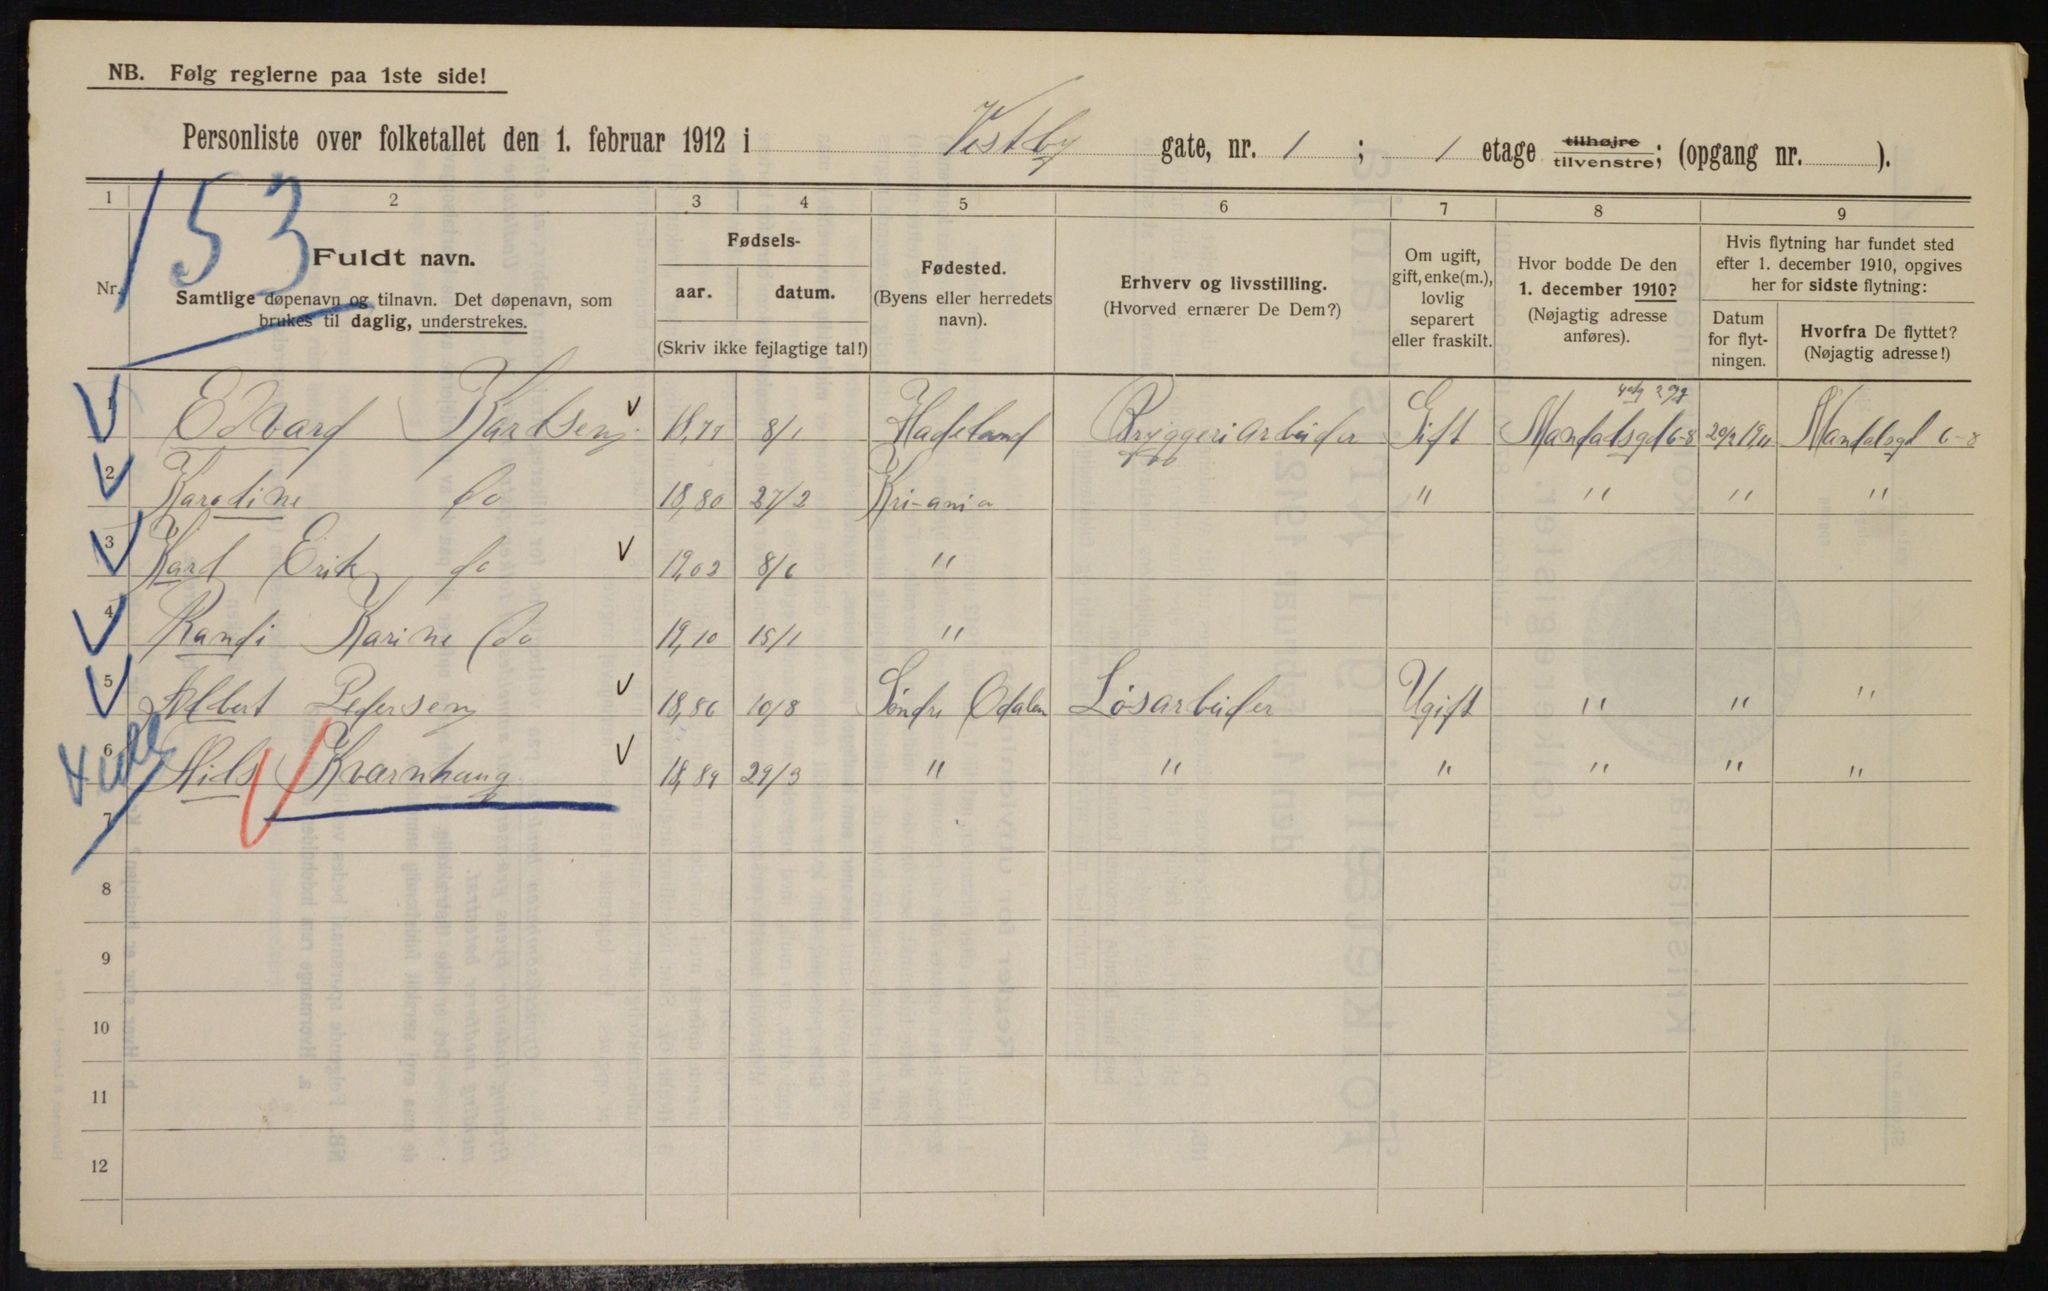 NB. Følg reglerne paa 1ste side!
Personliste over folketallet den 1. februar 1912 i Vestby gate, nr. 1 ; 1 etage tilhøjre tilvenstre; (opgang nr. ).
1 2 3 4 5 6 7 8 9
153
Nr.
Fuldt navn.
Samtlige døpenavn og tilnavn. Det døpenavn, som
brukes til daglig, understrekes.
Fødsels-
aar. datum.
(Skriv ikke fejlagtige tal!)
Fødested.
(Byens eller herredets
navn).
Erhverv og livsstilling.
(Hvorved ernærer De Dem?)
Om ugift,
gift, enke(m.),
lovlig
separert
eller fraskilt.
Hvor bodde De den
1. december 1910?
(Nøjagtig adresse
anføres).
Hvis flytning har fundet sted
efter 1. december 1910, opgives
her for sidste flytning:
Datum
for flyt-
ningen.
Hvorfra De flyttet?
(Nøjagtig adresse!)
1 Edvard Karlsen 18,77 8/1 Hadeland Bryggeriarbeider Gift Mandalsgd 6-8 1911 Mandalsgd 6-8
2 Karodine do 18,80 27/2 Kri-ania " " " "
3 Karl Erik do 19,02 8/6 "
4 Randi Karine do 19,10 15/1 "
5 Albert Pedersen 18,86 10/8 Søndre Odalen Løsarbeider Ugift " " "
6 Nils Kvarnhaug 18,89 29/3 " " " " " "
7
8
9
10
11
12